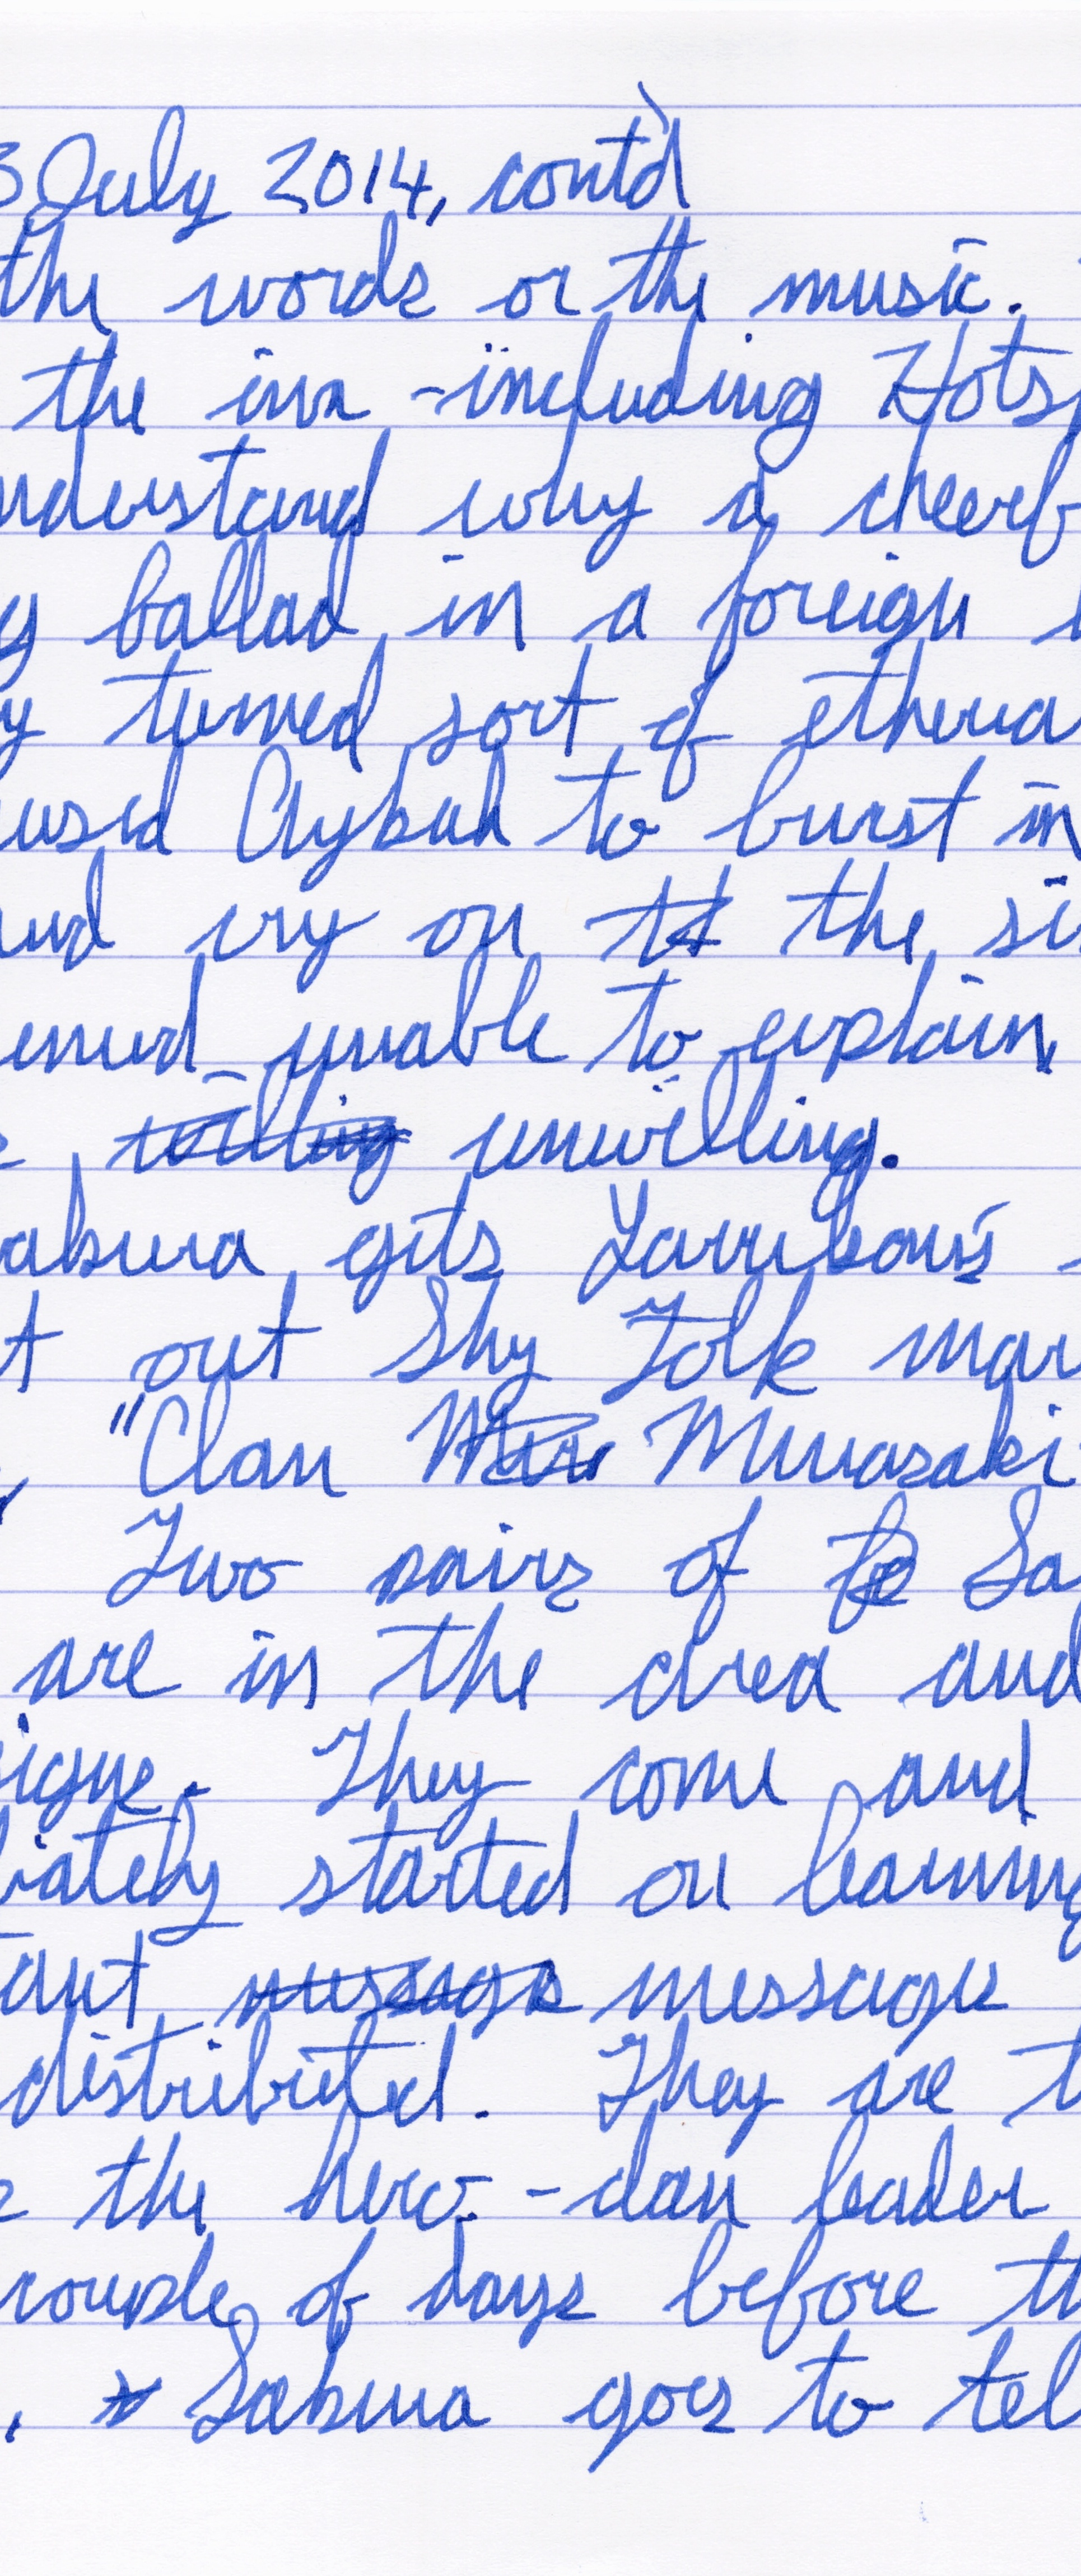 3 July 2014, cont'd
the words or the music.
the inn - including Hots
nderstand why a cheerf
g ballad in a foreign l
y turned sort of etherea
used Clybuh to burst in
and cry on the si
emed unable to explain,
unwilling.
akura gets
t out Shy Folk mar
"Clan Murasaki
Two pairs of Sa
are in the area and
igue. They come and
iately started on learning
tant message
distributed. They are t
the hero-clan leader
couple of days before th
. Sakura goes to tel